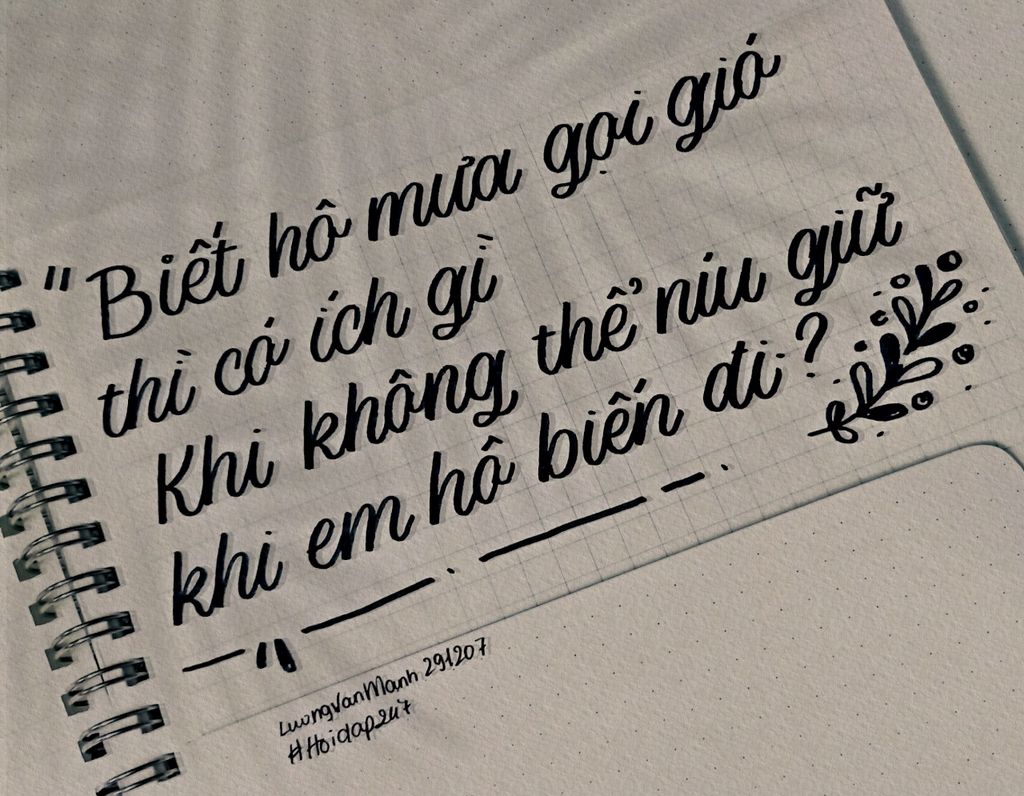 "Biết hô mưa gọi gió
thì có ích gì
Khi không thể níu giữ
khi em hô biến đi?
"
LuongVanManh 291207
#Hoidap247